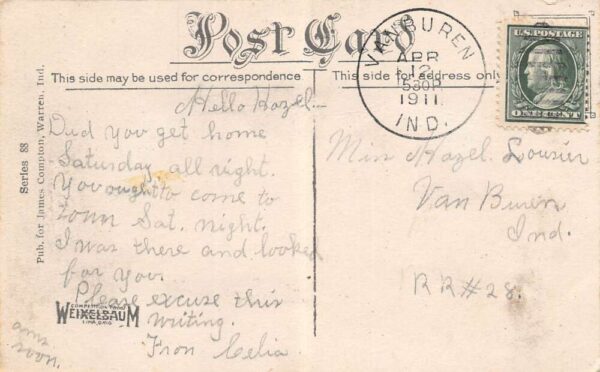 Post Card
This side may be used for correspondence
This side for address only
VAN BUREN
APR
12
530P
1911
IND.
U.S. POSTAGE
ONE CENT
Series 88
Pub. for James Compton, Warren, Ind.
Hello Hazel:-
Dud you get home
Saturday all right.
You ought to come to
town Sat. night.
I was there and looked
for you.
Please excuse this
writing.
From Celia
ans
soon.
WEIXELBAUM
LIMA, OHIO
Miss Hazel
Van Buren
Ind.
RR#28.